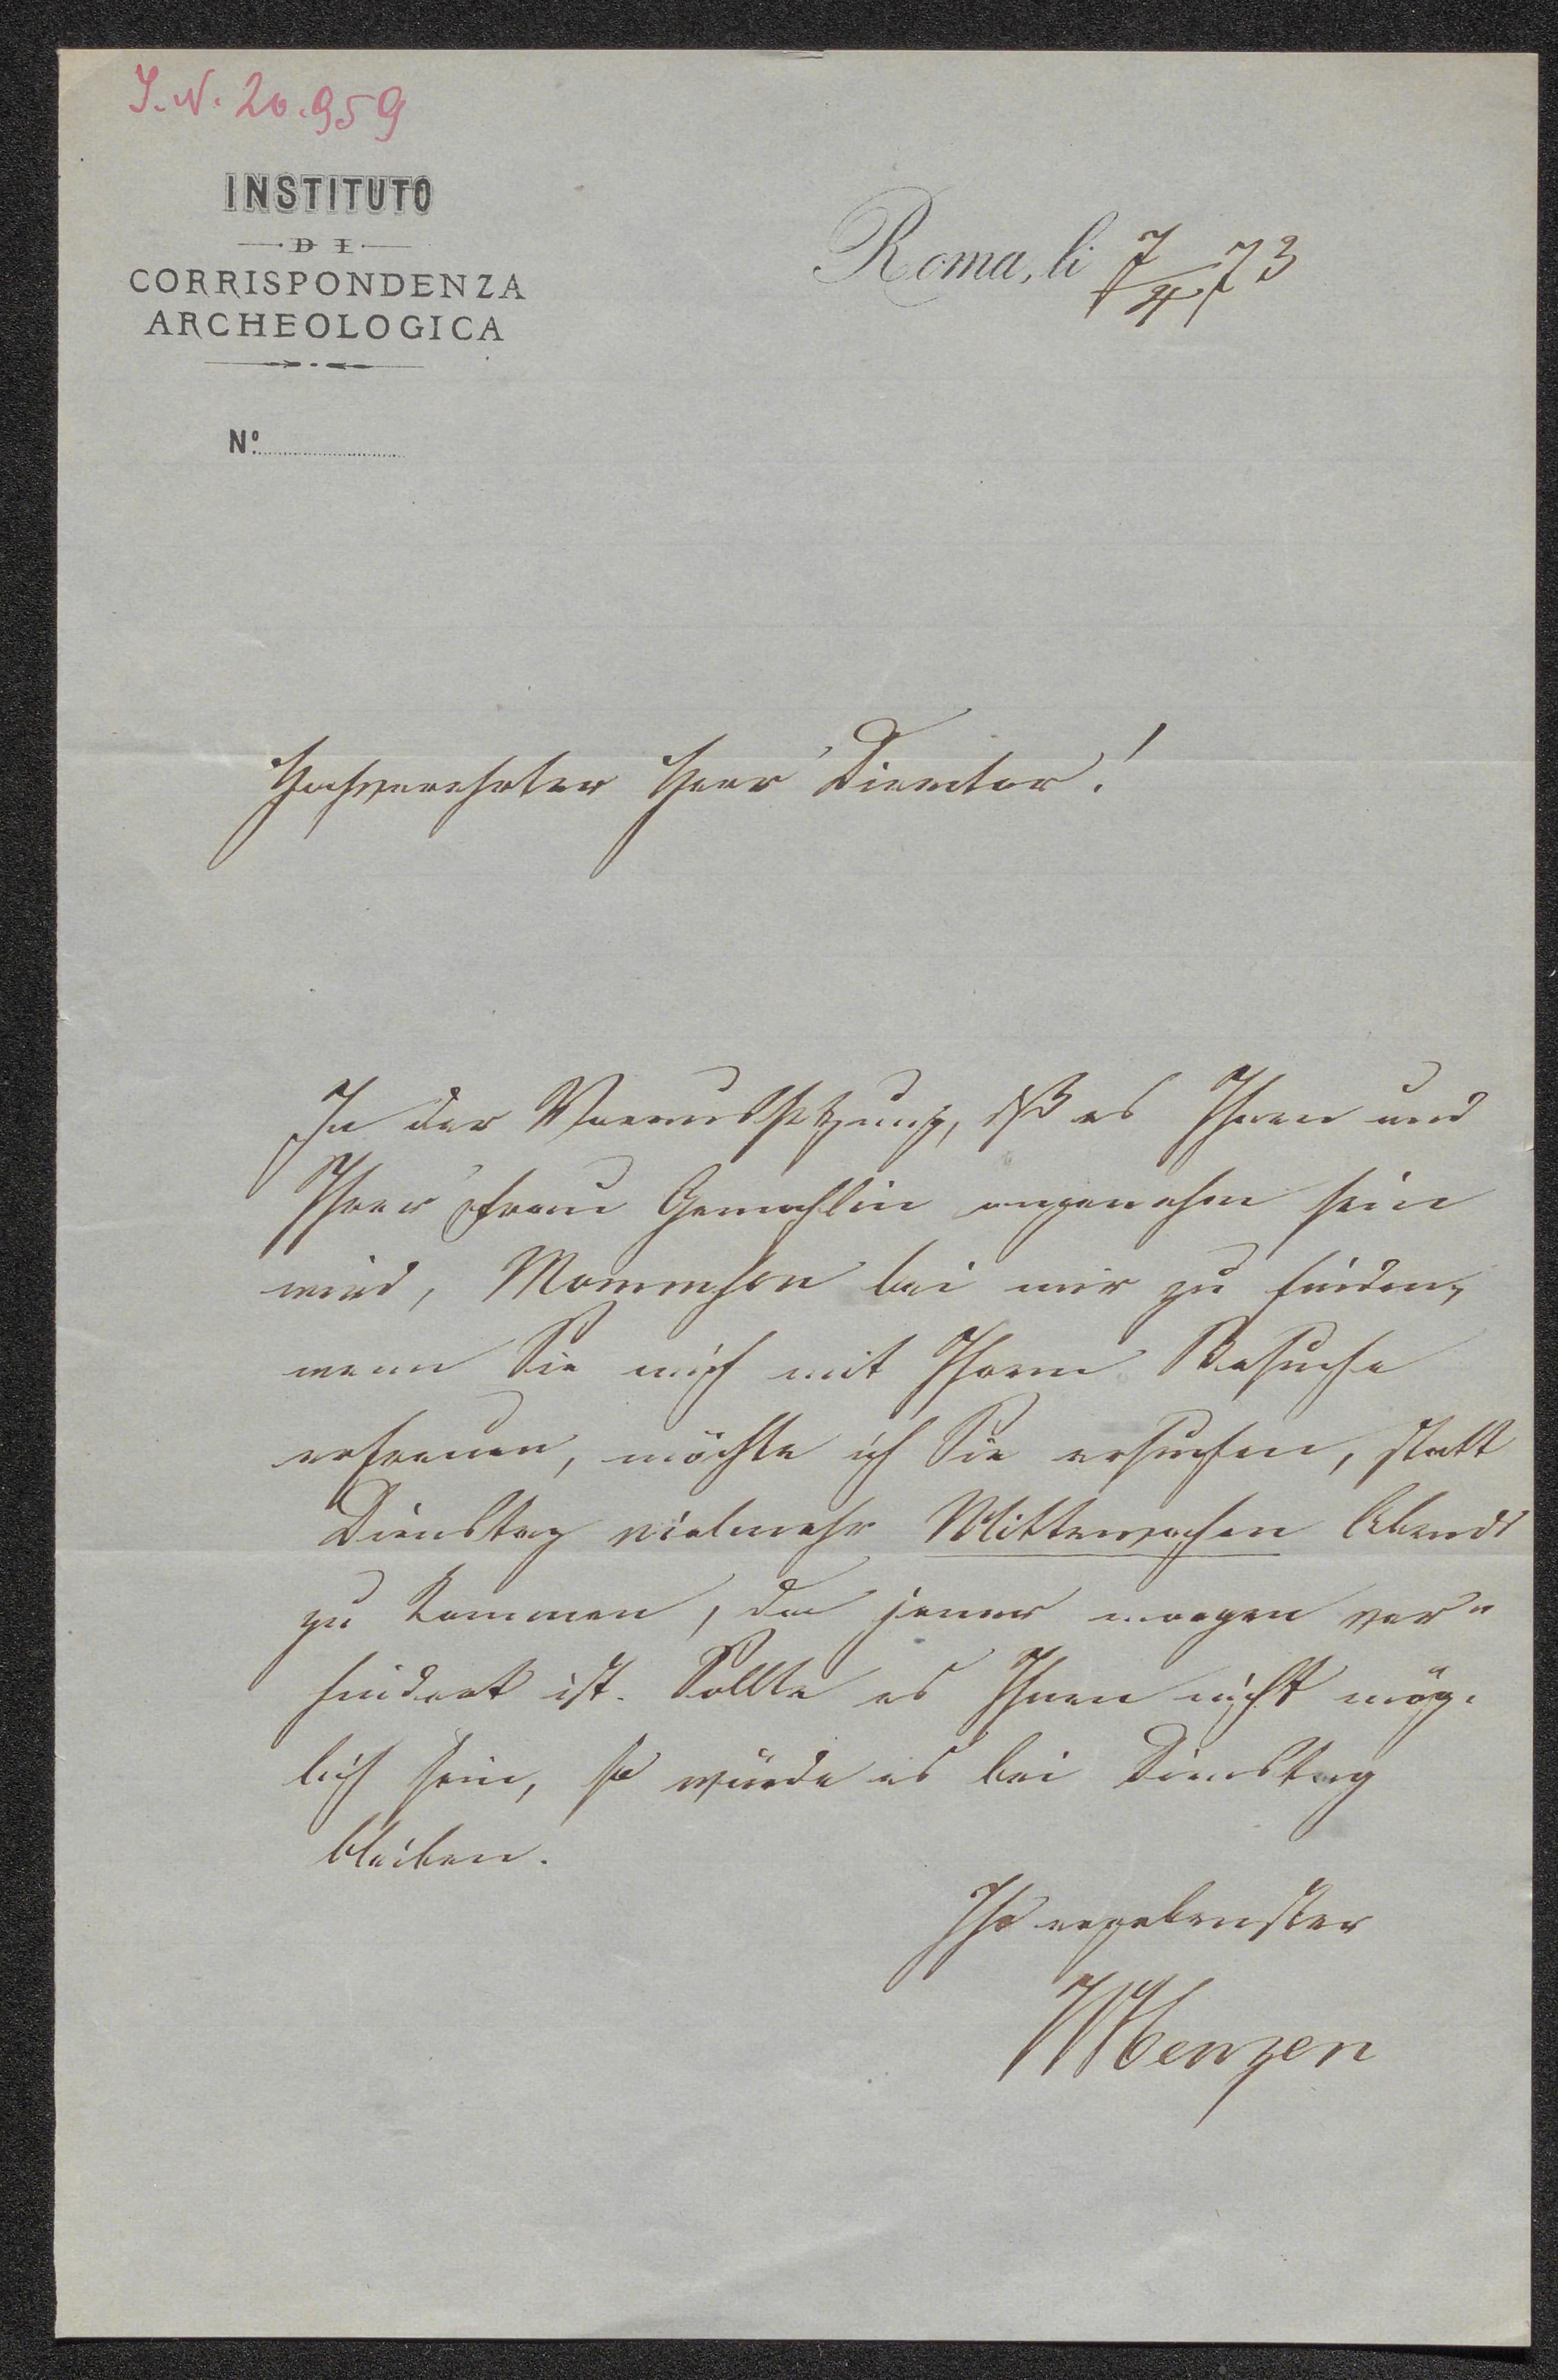 I.N. 20.959
INSTITUTO
DI
CORRISPONDENZA
ARCHEOLOGICA
Nº
Roma, li 7/4 73
Hochverehrter Herr Director!
In der Voraussetzung, dß es Ihnen und
Ihrer Frau Gemahlin angenehm sein
wird, Mommsen bei mir zu finden,
wenn Sie mich mit Ihrem Besuche
erfreuen, möchte ich Sie ersuchen, statt
Dienstag vielmehr Mittewochen Abends
zu kommen, da jener morgen ver-
hindert ist. Sollte es Ihnen nicht mög-
lich sein, so würde es bei Dienstag
bleiben.
Ihr ergebenster
WHenzen